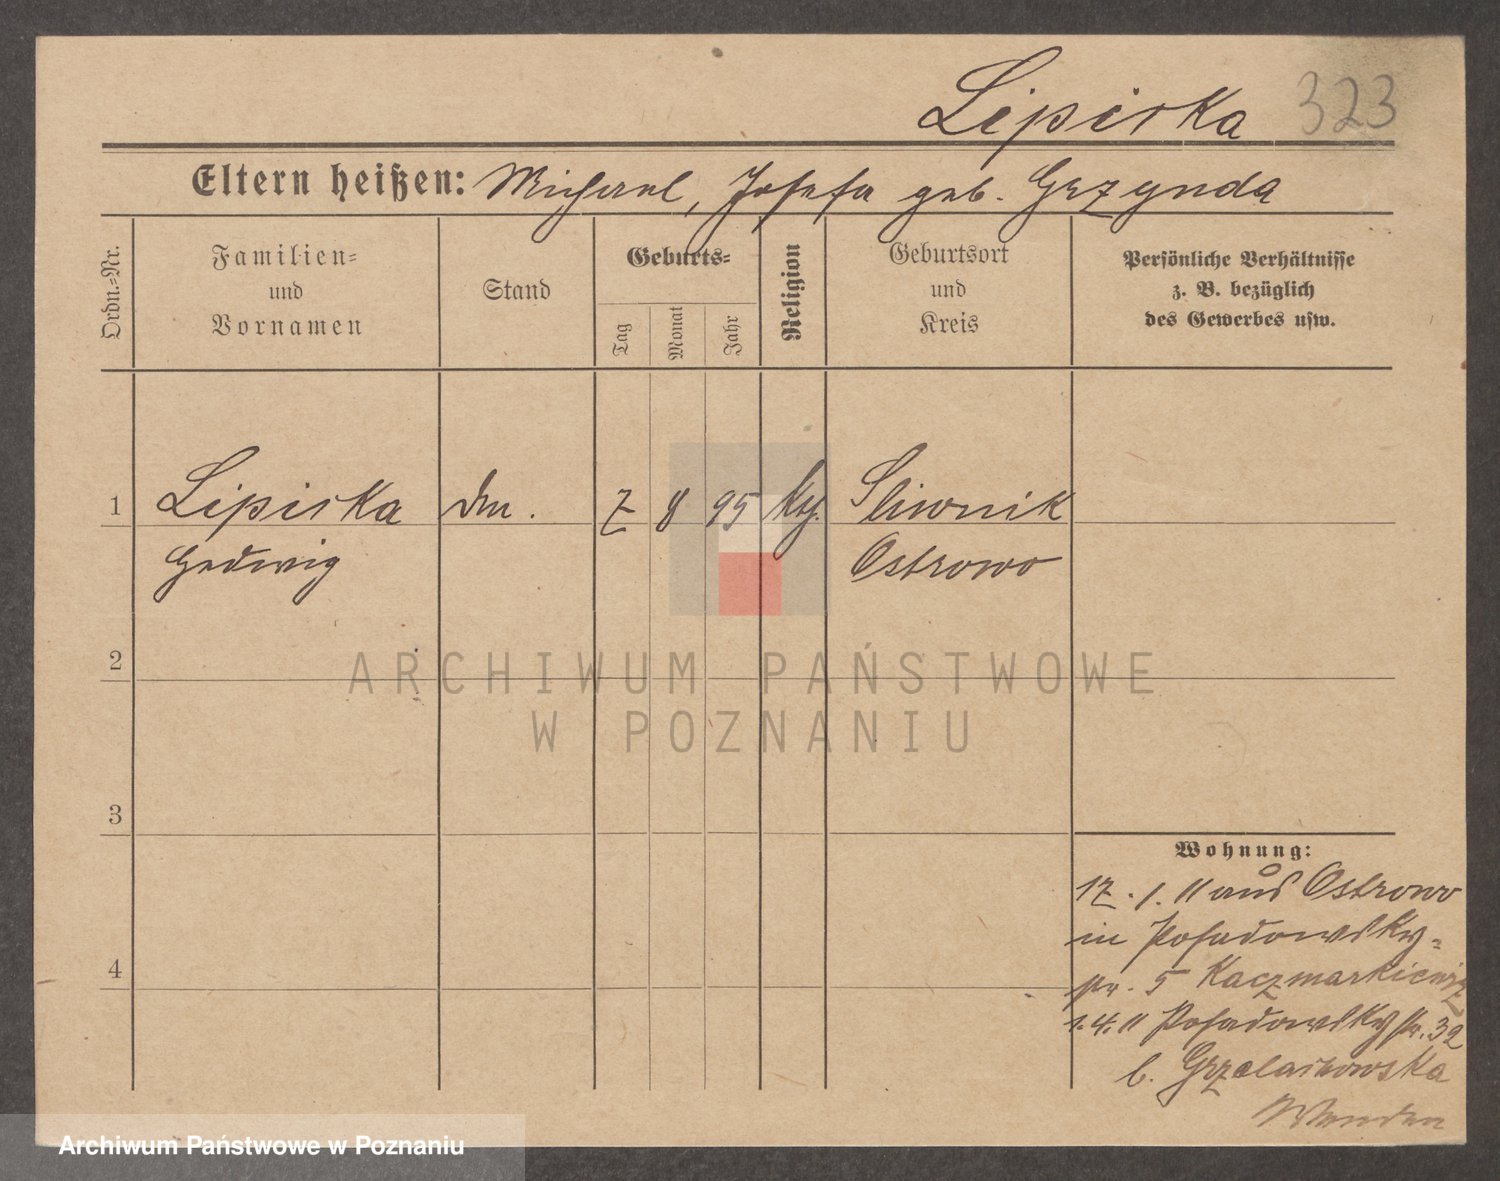 Lipiska 323
Eltern heißen: Michael, Josefa geb. Grzynda
Ordn.=Nr.
Familien=
und
Vornamen
Stand
Geburts=
Tag
Monat
Jahr
Religion
Geburtsort
und
Kreis
Persönliche Verhältnisse
z. B. bezüglich
des Gewerbes usw.
1 Lipiska 7 8 95 kth. Sliwnik
Hedwig Ostrowo
2
3
4
Wohnung:
17.1.11 aus Ostrowo
in Posadowsky=
str. 5 Kaczmarkiewicz
1.4.11 Posadowskystr. 32
b.
ARCHIWUM PAŃSTWOWE
W POZNANIU
Archiwum Państwowe w Poznaniu